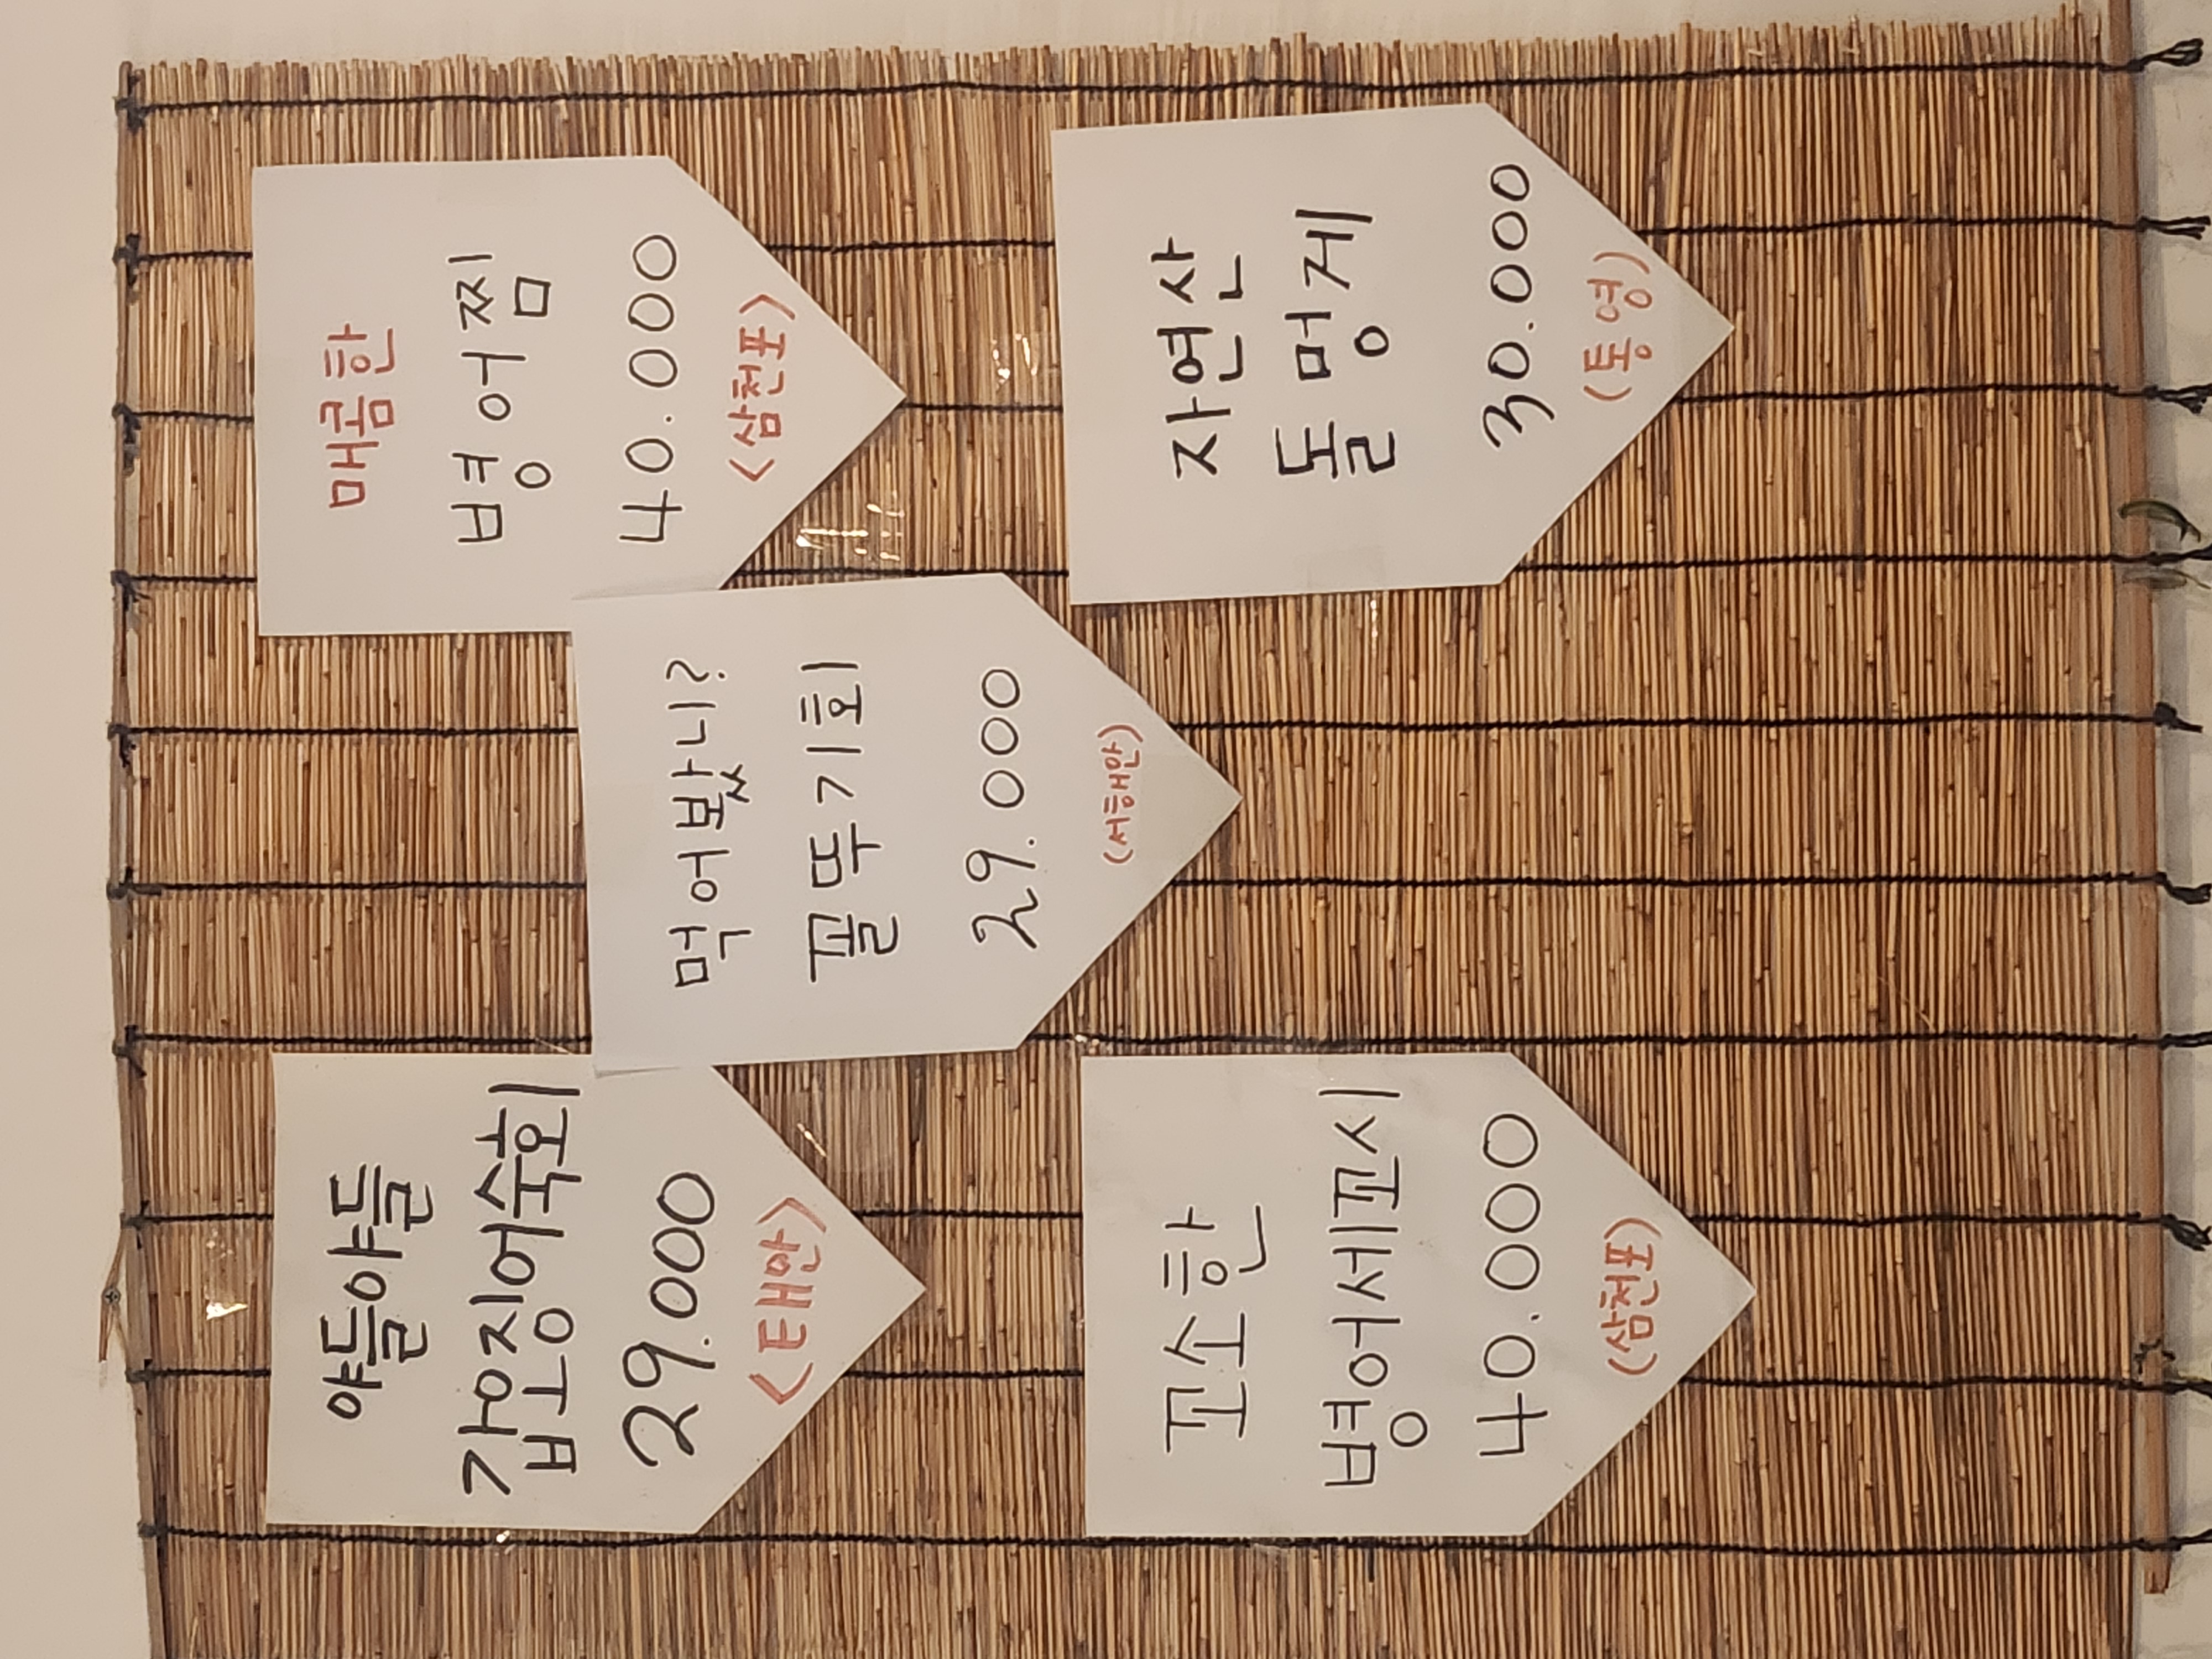 야들야들
갑오징어숙회
29.000
<태안>
먹어밨니?
꼴뚜기회
29.000
(서해안)
매콤한
병어찜
40.000
<삼천포>
꼬소한
병어세꼬시
40.000
(삼천포)
자연산
돌멍게
30.000
(통영)